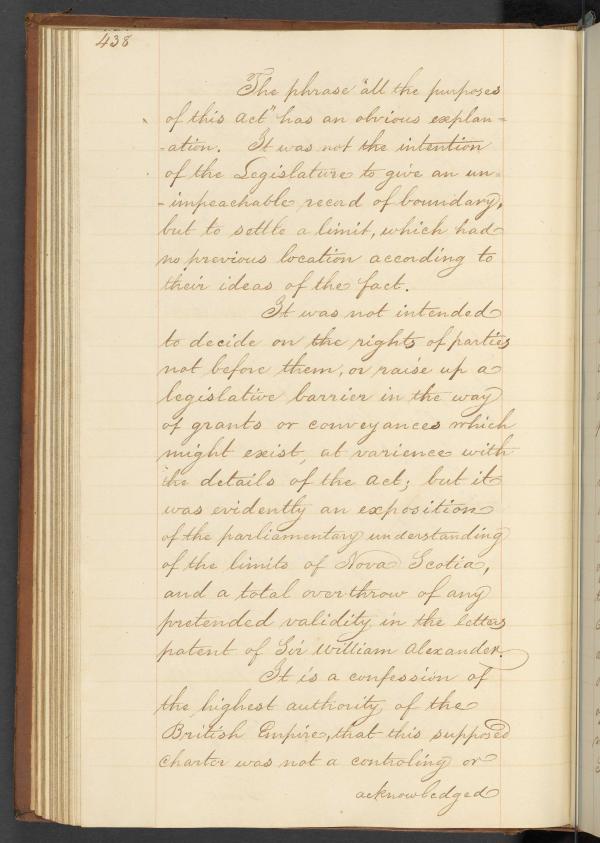 438
The phrase "all the purposes
of this act" has an obvious explan=
-ation. It was not the intention
of the Legislature to give an un=
-impeachable record of boundary,
but to settle a limit, which had
no previous location according to
their ideas of the fact.
It was not intended
to decide on the rights of parties
not before them, or raise up a
legislative barrier in the way
of grants or conveyances which
might exist, at varience with
the details of the act; but it
was evidently an exposition
of the parliamentary understanding
of the limits of Nova Scotia,
and a total overthrow of any
pretended validity in the letters
patent of Sir William Alexander.
It is a confession of
the highest authority of the
British Empire, that this supposed
charter was not a controling or
acknowledged